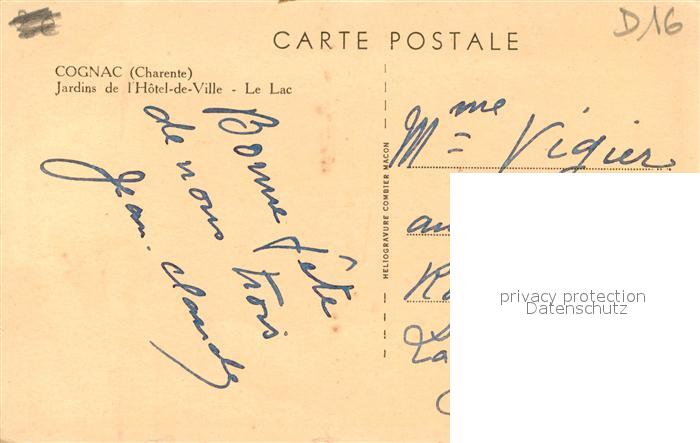 D16
CARTE POSTALE
COGNAC (Charente)
Jardins de l'Hôtel-de-Ville - Le Lac
Bonne fête
de nous trois
Jean. Claude
HELIOGRAVURE COMBIER MACON
Mme Vigier
privacy protection
Datenschutz